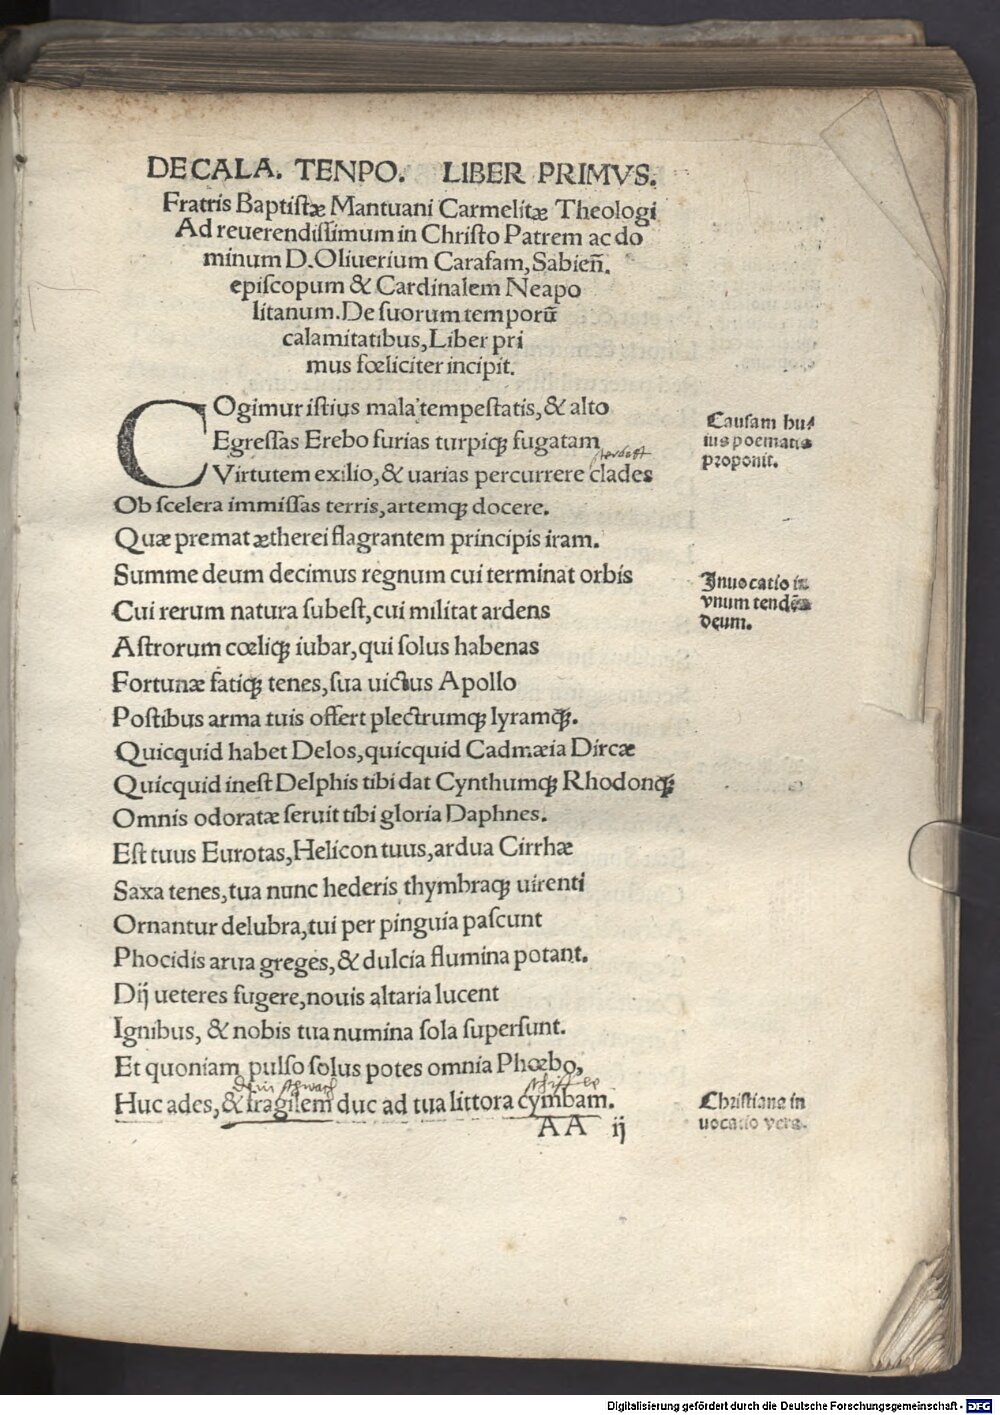 DE CALA. TENPO. LIBER PRIMVS.
Fratris Baptiſtæ Mantuani Carmelitæ Theologi
Ad reuerendiſſimum in Chriſto Patrem ac do
minum D. Oliuerium Carafam, Sabieñ.
epiſcopum & Cardinalem Neapo
litanum. De ſuorum temporū
calamitatibus, Liber pri
mus fœliciter incipit.
COgimur iſtius mala tempeſtatis, & alto
Egreſſas Erebo furias turpiqꝫ fugatam
Virtutem exilio, & uarias percurrere clades
Ob ſcelera immiſſas terris, artemqꝫ docere.
Quæ premat ætherei flagrantem principis iram.
Summe deum decimus regnum cui terminat orbis
Cui rerum natura ſubeſt, cui militat ardens
Aſtrorum cœliqꝫ iubar, qui ſolus habenas
Fortunæ fatiqꝫ tenes, ſua uictus Apollo
Poſtibus arma tuis offert plectrumqꝫ lyramqꝫ.
Quicquid habet Delos, quicquid Cadmæia Dircæ
Quicquid ineſt Delphis tibi dat Cynthumqꝫ Rhodonqꝫ
Omnis odoratæ ſeruit tibi gloria Daphnes.
Eſt tuus Eurotas, Helicon tuus, ardua Cirrhæ
Saxa tenes, tua nunc hederis thymbraqꝫ uirenti
Ornantur delubra, tui per pinguia paſcunt
Phocidis arua greges, & dulcia flumina potant.
Dij ueteres fugere, nouis altaria lucent
Ignibus, & nobis tua numina ſola ſuperſunt.
Et quoniam pulſo ſolus potes omnia Phœbo,
Huc ades, & fragilem duc ad tua littora cymbam.
AA ij
Cauſam hu⸗
ius poematis
proponit.
Inuocatio in
vnum tendēs
deum.
Chriſtiana in
uocatio vera.
Digitalisierung gefördert durch die Deutsche Forschungsgemeinschaft - DFG